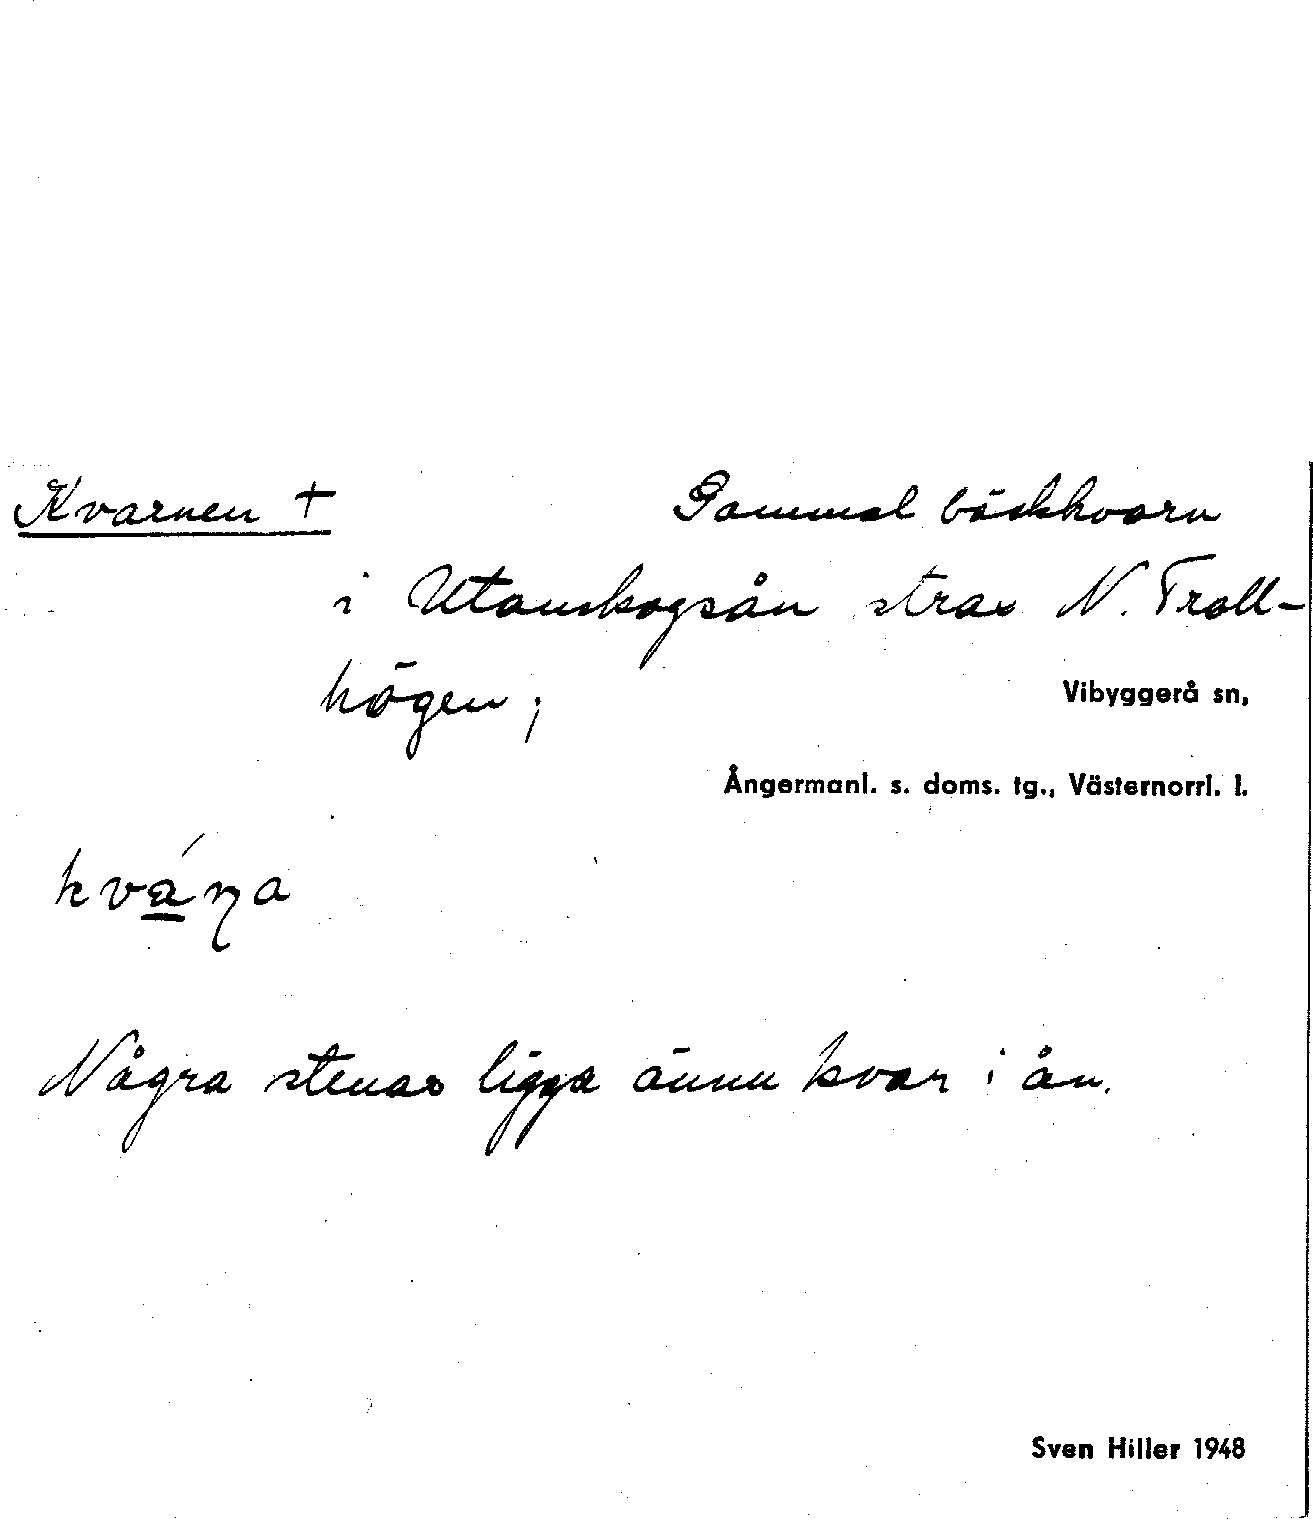 Kvarnen + Gammal bäckkvarn
i Utanskogsån strax N. Troll-
högen;
Vibyggerå sn,
Ångermanl. s. doms. tg., Västernorrl. l.
kváɳa
Några stenar ligga ännu kvar i ån.
Sven Hiller 1948